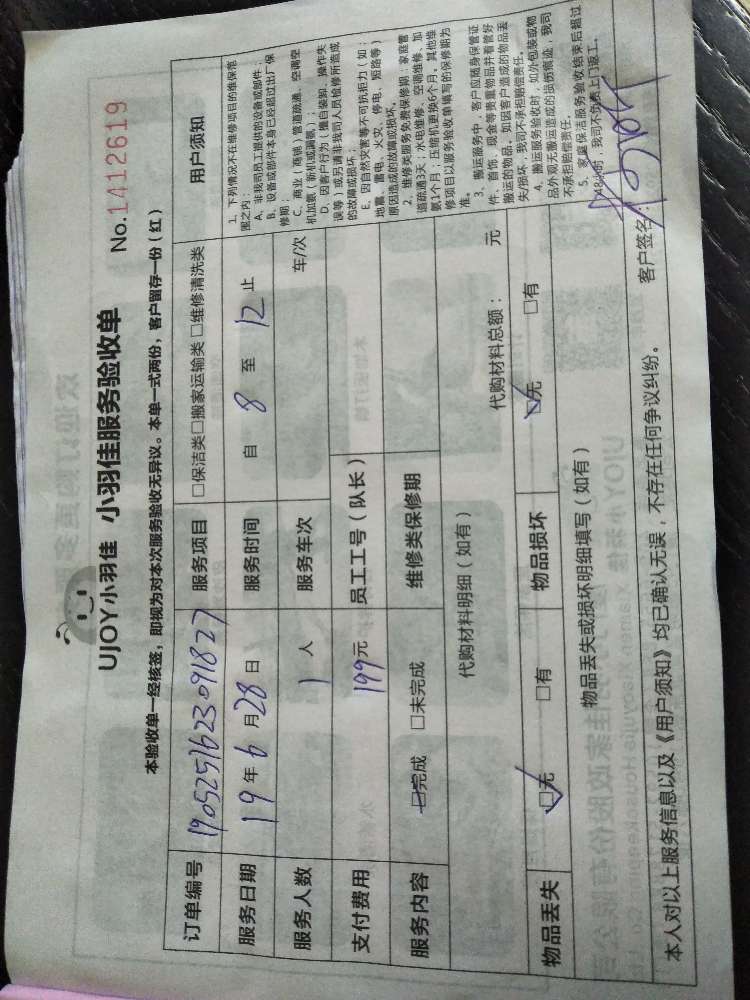 UJOY小羽佳 小羽佳服务验收单
No.1412619
本验收单一经核签，即视为对本次服务验收无异议。本单一式两份，客户留存一份（红）
订单编号 1905251623091827 服务项目 □保洁类□搬家运输类□维修清洗类 用户须知
服务日期 19年6月28日 服务时间 自 8 至 12 止
服务人数 1 人 服务车次 车/次
支付费用 199元 员工工号（队长）
服务内容 □完成 □未完成 维修类保修期
代购材料明细（如有） 代购材料总额： 元
物品丢失 □无 □有 物品损坏 □无 □有
物品丢失或损坏明细填写（如有）
1、下列情况不在维修项目的维保范
围之内：
A、非我司员工提供的设备或部件；
B、设备或部件本身已经超过出厂保
修期；
C、商业（商铺）管道疏通、空调空
机加氨（新机或漏氨）；
D、因客户行为（擅自装卸、操作失
误等）或另请非我司人员检修所造成
的故障或损坏；
E、因自然灾害等不可抗拒力（如：
地震、雷电、火灾、停电、短路等）
原因造成的故障或损坏。
2、维修类服务免费保修期：家庭管
道疏通3天；水电维修、空调维修、加
氨1个月；压缩机更换6个月，其他维
修项目以服务验收单填写的保修期为
准。
3、搬运服务中，客户应随身保管证
件、首饰、现金等贵重物品并看管好
搬运的物品。如因客户造成的物品丢
失/损坏，我司不承担赔偿责任。
4、搬运服务验收时，如外包装或物
品外观无搬运造成的损伤痕迹，我司
不承担赔偿责任。
5、家庭保洁服务验收结束后超过
48小时，我司不免费上门返工。
本人对以上服务信息以及《用户须知》均已确认无误，不存在任何争议纠纷。 客户签名：